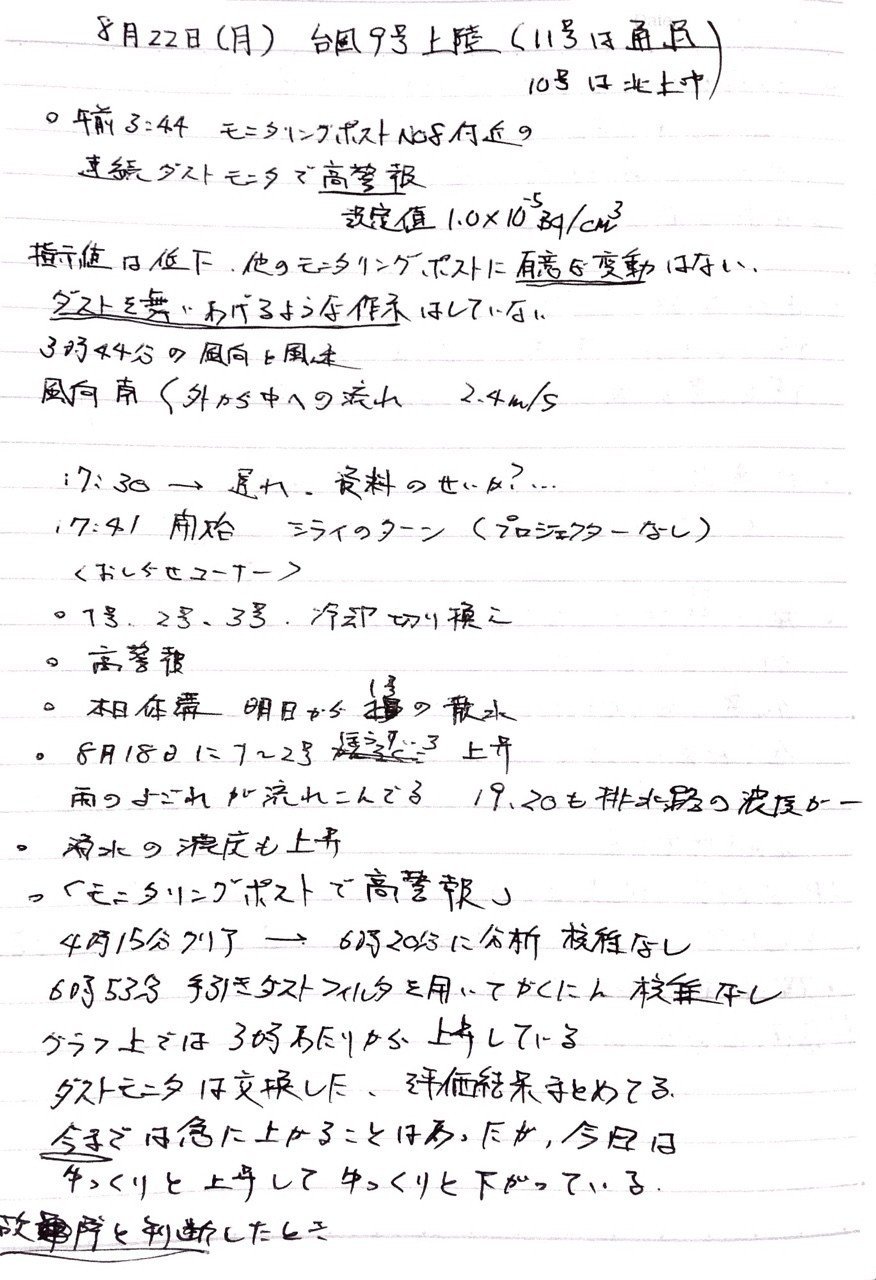 8月22日(月) 台風9号上陸(11号は通過
10号は北上中)
○ 午前3:44 モニタリングポストNo8付近の
連続ダストモニタで高警報
設定値 1.0×10⁻⁵Bq/cm³
指示値は低下、他のモニタリングポストに有意な変動はない、
ダストを舞いあげるような作業はしていない
3時44分の風向と風速
風向 南 (外から中への流れ 2.4m/s
17:30 → 遅れ。資料のせいか?…
17:41 開始 シライのターン (プロジェクターなし)
<おしらせコーナー>
○ 1号、2号、3号、冷却切り換え
○ 高警報
○ 本日休溝 明日から 1号の散水
○ 8月18日に1~2号 上昇
雨のよごれが流れこんでる 19、20も排水路の濃度が―
○ 湧水の濃度も上昇
○ 「モニタリングポストで高警報」
4時15分クリア → 6時20分に分析 核種なし
6時53分 手引きダストフィルタを用いてかくにん 核種なし
グラフ上では3時あたりから上昇している
ダストモニタは交換した、評価結果まとめてる
今までは急に上がることはあったが、今回は
ゆっくりと上昇してゆっくりと下がっている。
故障と判断したとき